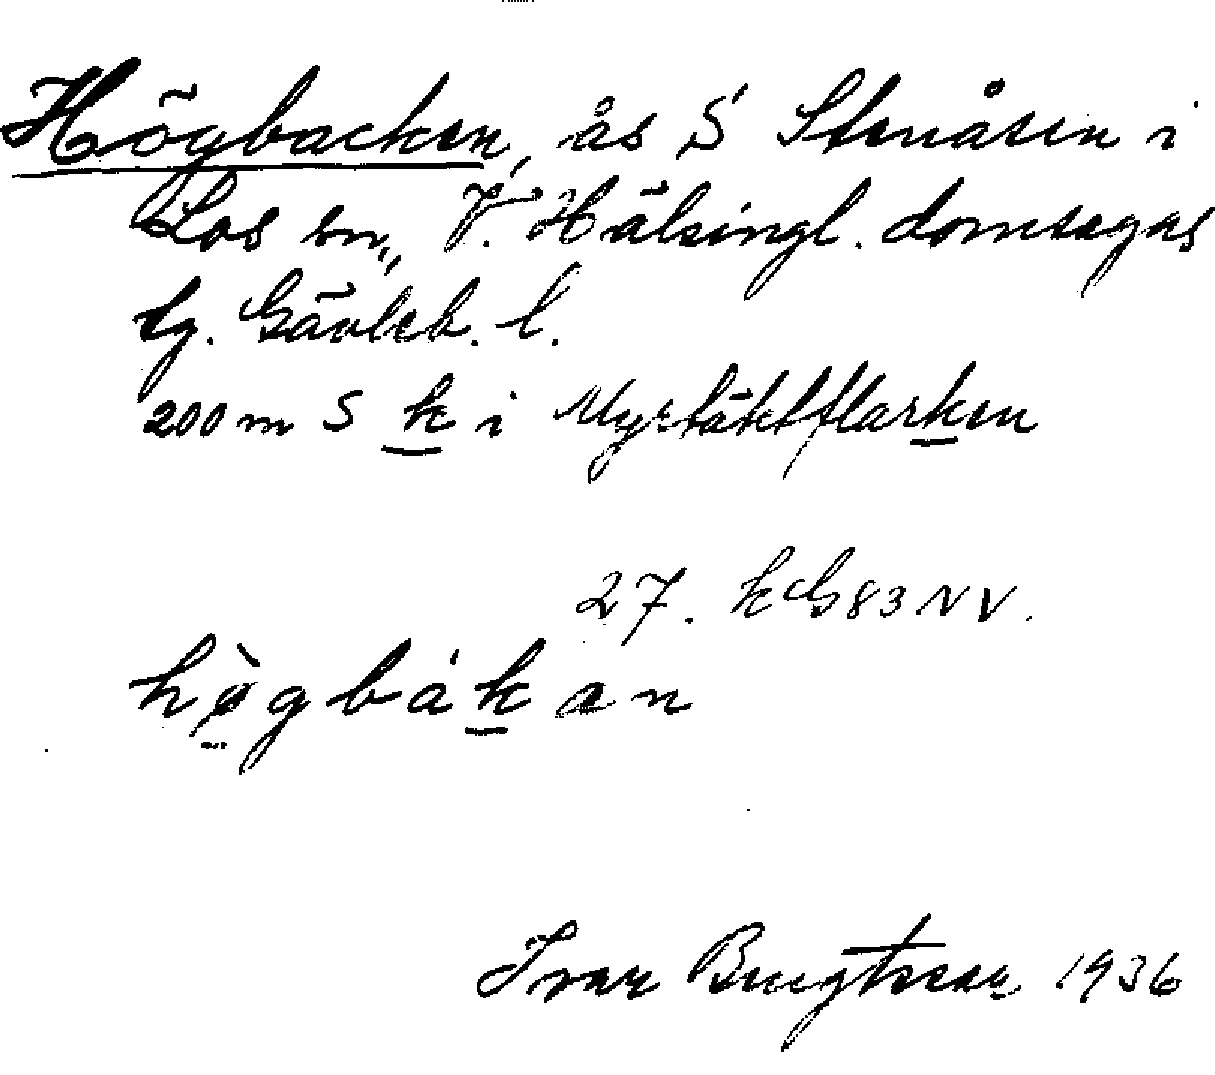 Högbacken, ås S Stenåsen i
Los sn, V. Hälsingl. domsagas
tg. Gävleb. l.
200 m S k i Myrtäktflarken
27. k G 83 NV.
hø̀gbákan
Ivar Bengtsson 1936